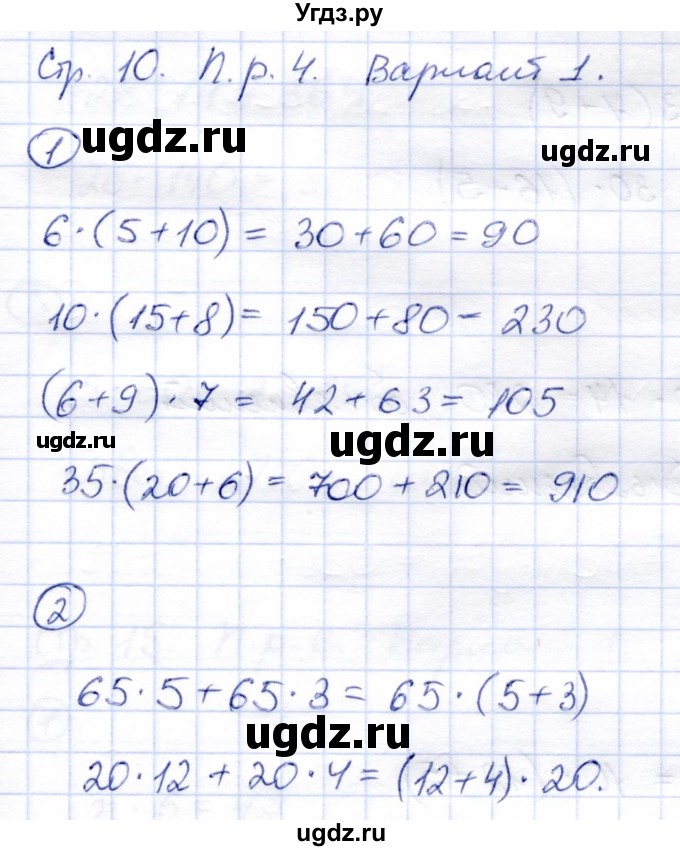 Угдз.ру
Стр. 10. П.р. 4. Вариант 1.
1 ugdz.ru
ugdz.ru
6·(5+10) = 30+60 = 90
10·(15+8) = 150+80 - 230
(6+9)·7 = 42+63 = 105
ugdz.ru
ugdz.ru
35·(20+6) = 700+210 = 910
2
65·5+65·3 = 65·(5+3)
ugdz.ru
20·12 + 20·4 = (12+4)·20.
ugdz.ru